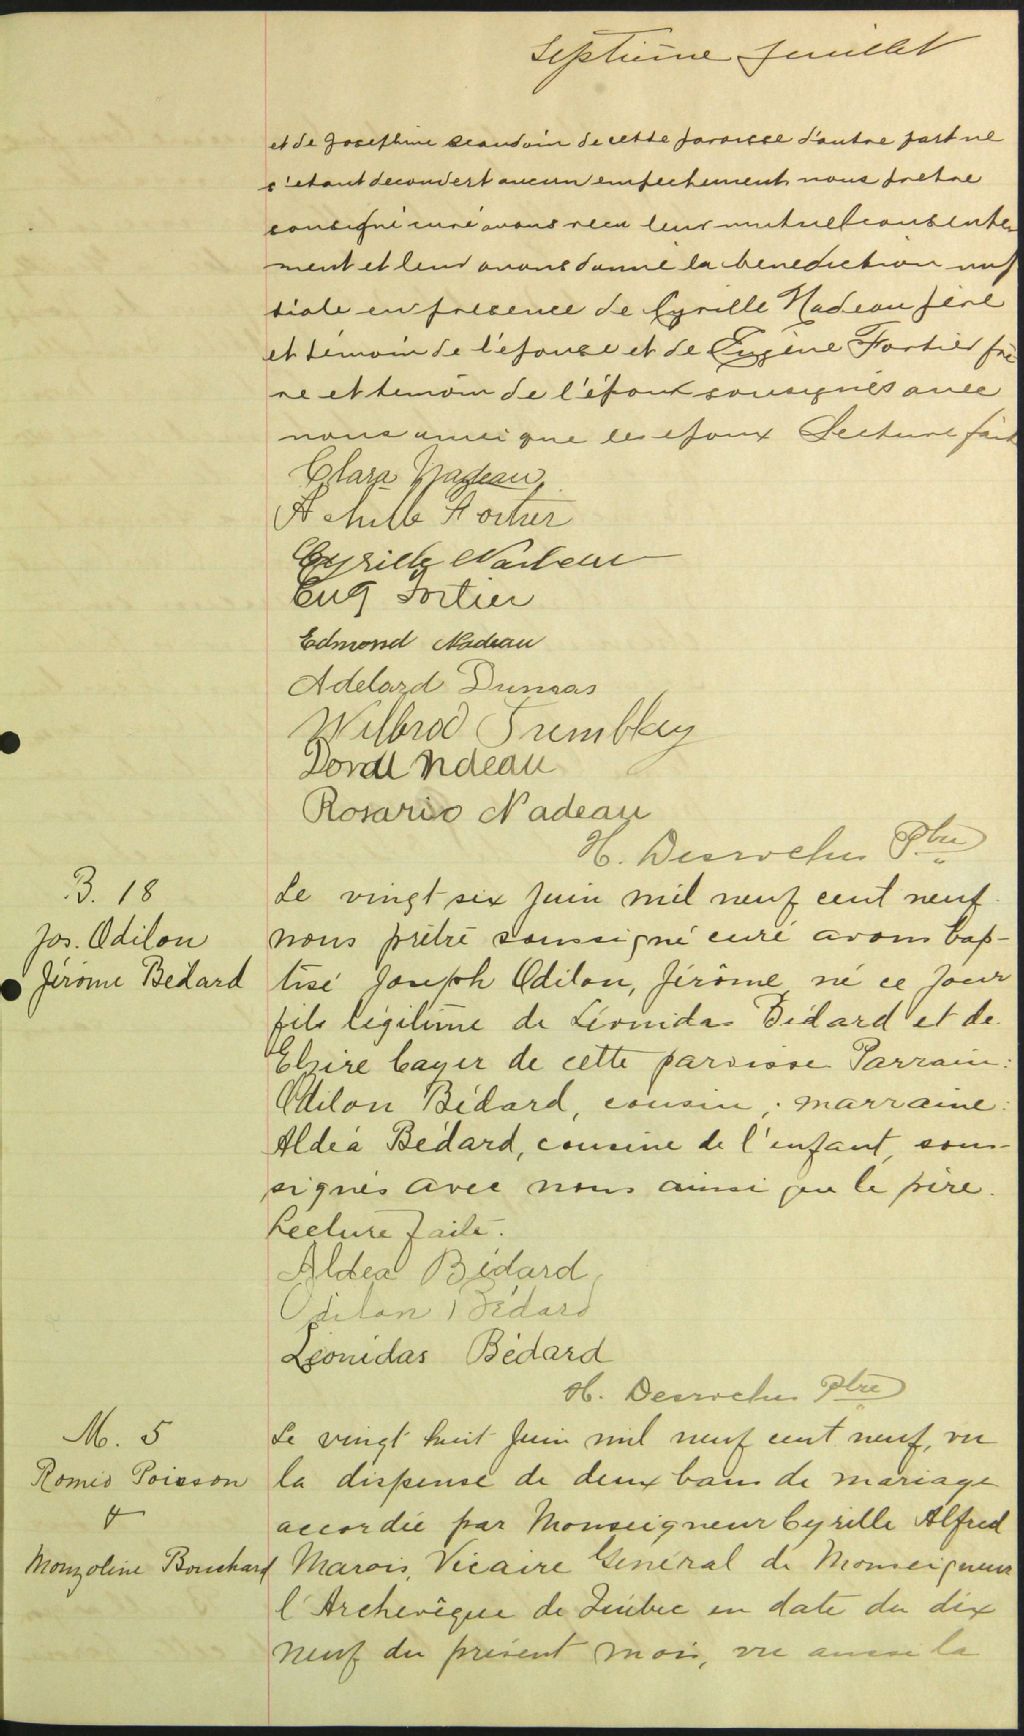 Septième feuillet
et de Josephine Beaudoin de cette paroisse d'autre part ne
s'etant decouvert aucun empechement nous pretre
soussigné curé avons recu leur mutuel consente
ment et leur avons donné la benediction nup
tiale en presence de Cyrille Nadeau père
et témoin de l'épouse et de Eugène Fortier frè
re et temoin de l'époux sousignés avec
nous ainsi que les epoux Lecture faite
Clara Nadeau
Achille Fortier
Cyrille Nadeau
Eug Fortier
Edmond Nadeau
Adelard Dumas
Wilbrod Tremblay
Nadeau
Rosario Nadeau
H. Desrochers Ptre
B. 18
Jos. Odilon
Jérôme Bédard
Le vingt six Juin mil neuf cent neuf
nous prêtre soussigné curé avons bap-
tisé Joseph Odilon, Jérôme, né ce jour
fils légitime de Léonidas Bédard et de
Elzire Cayer de cette paroisse Parrain:
Odilon Bédard, cousin; marraine:
Aldéa Bédard, cousine de l'enfant, sous-
signés avec nous ainsi que le père.
Lecture faite.
Aldea Bédard
Odilon Bédard
Léonidas Bédard
H. Desrochers Ptre
M. 5
Roméo Poisson
&
Monzoline Bouchard
Le vingt huit Juin mil neuf cent neuf, vu
la dispense de deux bans de mariage
accordée par Monseigneur Cyrille Alfred
Marois, Vicaire Général de Monseigneur
l'Archevêque de Québec en date du dix
neuf du présent mois, vu aussi la